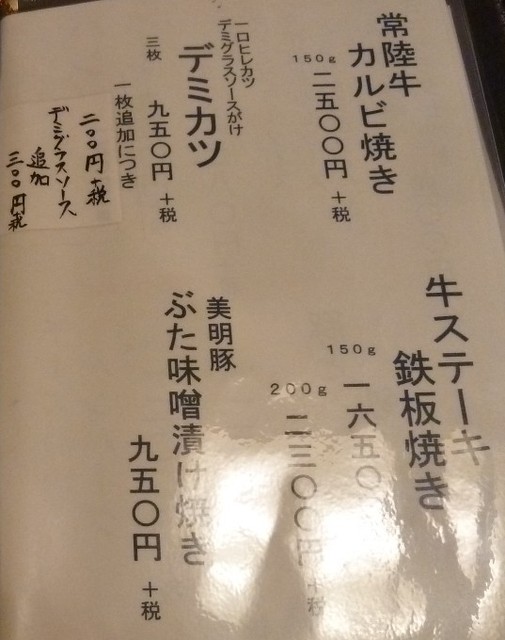 常陸牛
カルビ焼き
150g 二五〇〇円 +税
一口ヒレカツ
デミグラスソースがけ
デミカツ
三枚 九五〇円 +税
一枚追加につき
二〇〇円+税
デミグラスソース
追加
三〇〇円+税
牛ステーキ
鉄板焼き
150g 一六五〇
200g 二三〇〇円 +税
美明豚
ぶた味噌漬け焼き
九五〇円 +税